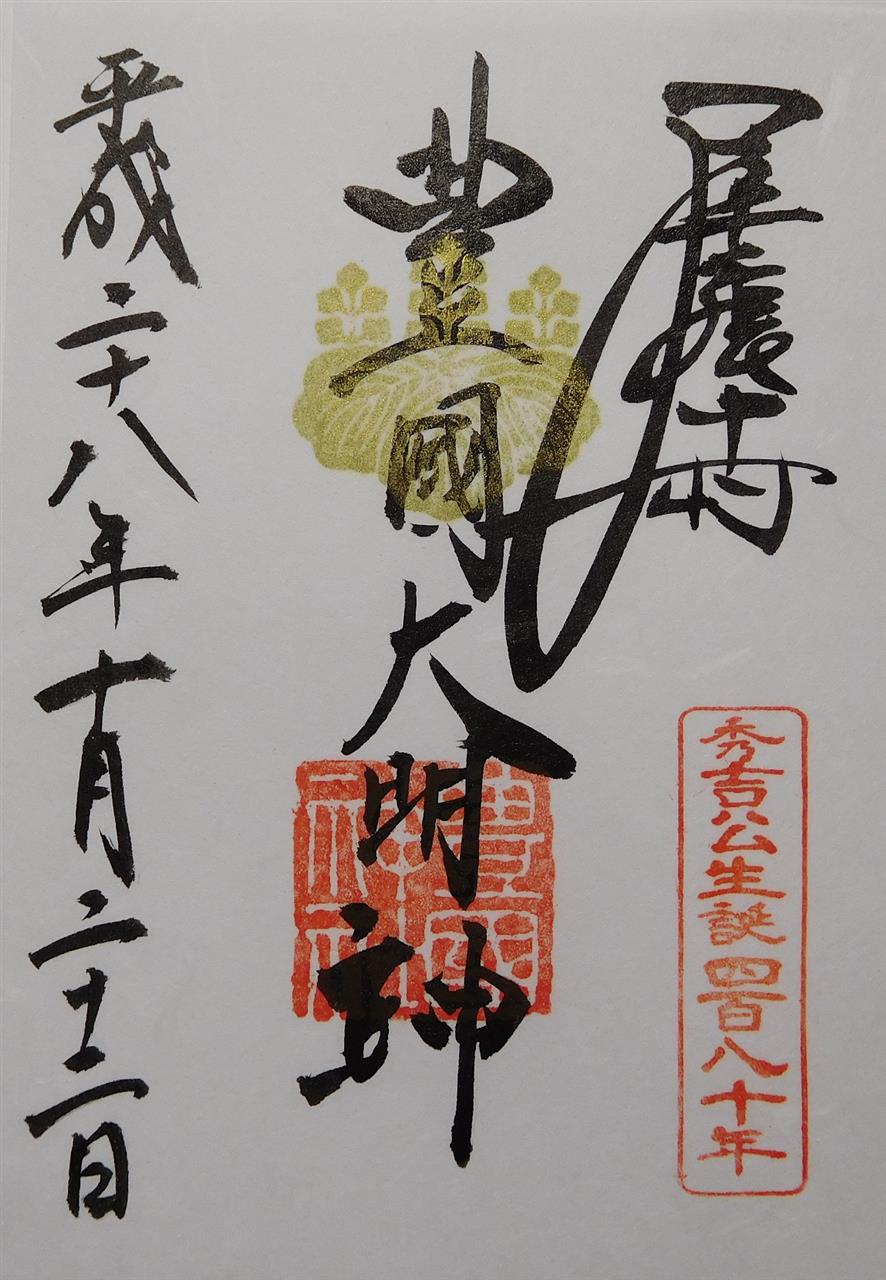 尾張中村
秀吉公生誕四百八十年
豊國大明神
豊國神社
平成二十八年十月二十二日